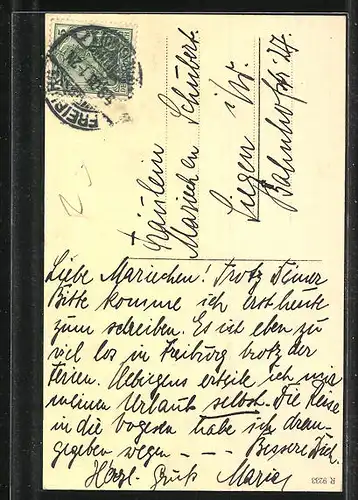 Fräulein
Mariechen Schubert
Siegen i/W.
Bahnhofstr. 27
Liebe Mariechen! Trotz Deiner
Bitte komme ich erst heute
zum schreiben. Es ist eben zu
viel los in Freiburg trotz der
Ferien. Uebrigens erteile ich mir
meinen Urlaub selbst. Die Reise
in die Vogesen habe ich dran-
gegeben wegen - - - Bessere Dich.
Herzl. Gruß Marie
R 9233
FREIBURG